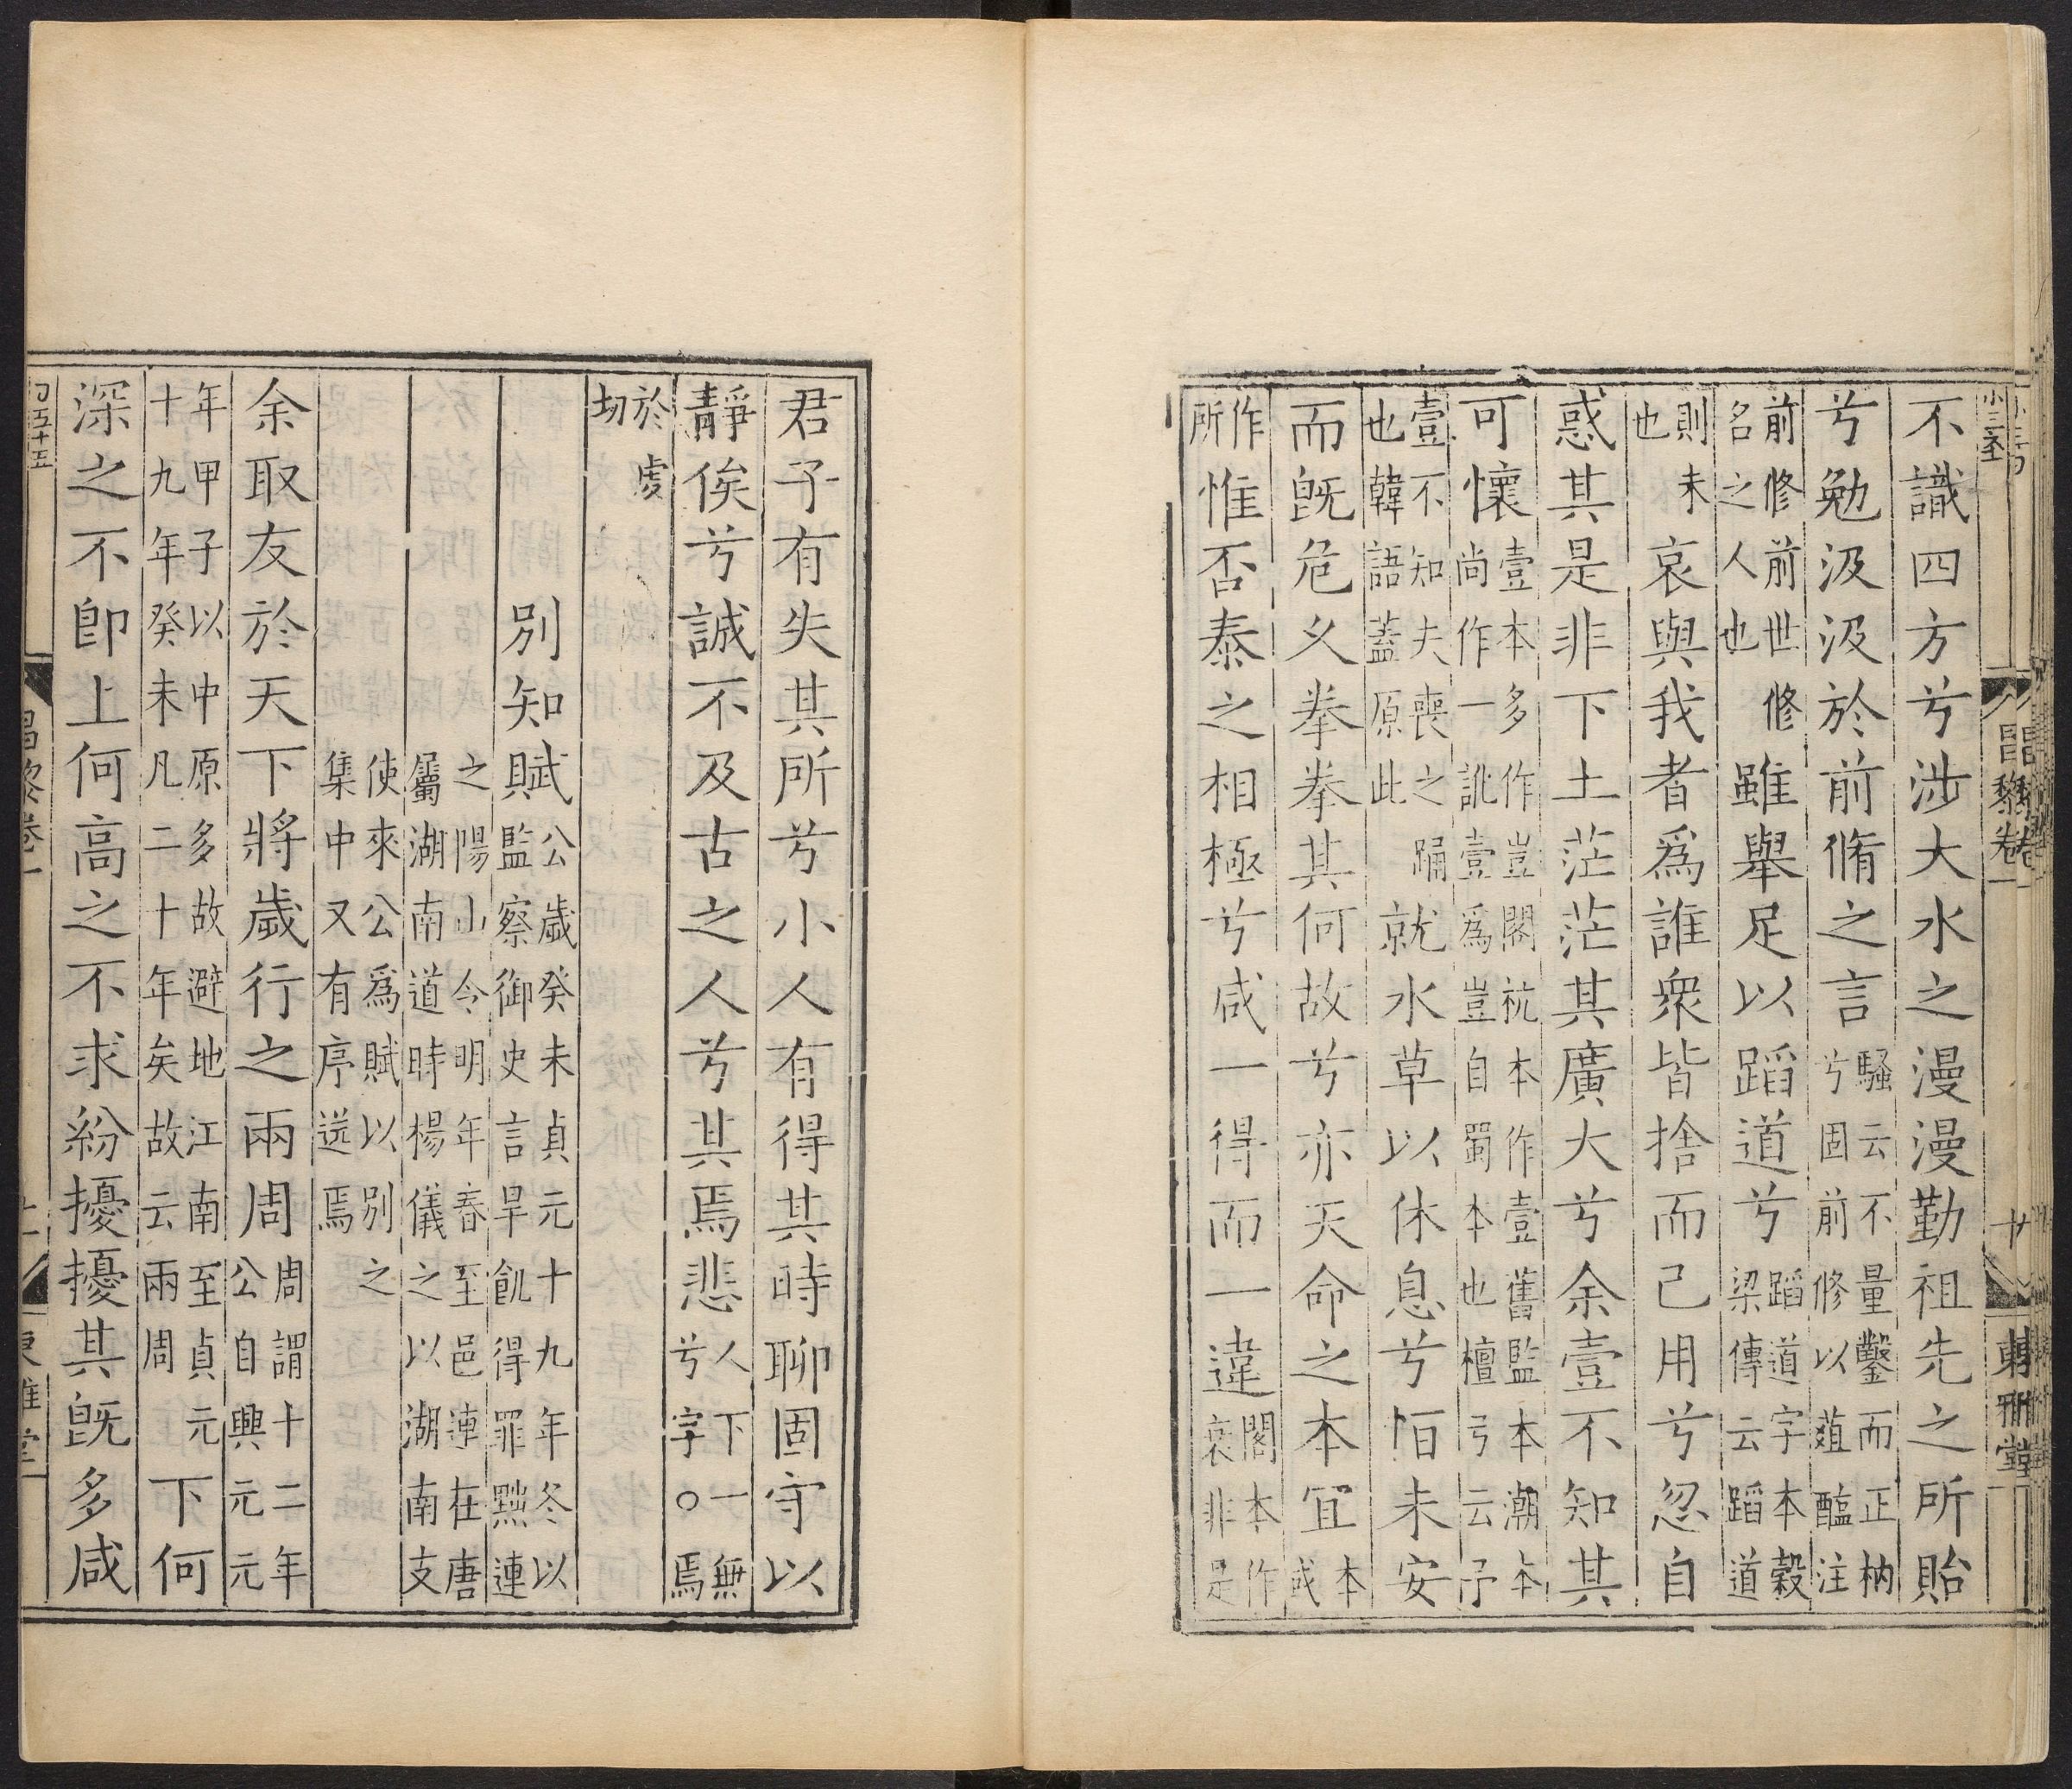 不識四方兮涉大水之漫漫勤祖先之所貽
兮勉汲汲於前脩之言騷云不量鑿而正枘兮固前修以葅醢注
前修前世修名之人也雖舉足以蹈道兮蹈道字本穀梁傳云蹈道
則未也哀與我者爲誰衆皆捨而己用兮忽自
惑其是非下土茫茫其廣大兮余壹不知其
可懷壹本多作豈閣杭本作壹舊監本潮本尚作一訛壹爲豈自蜀本也檀弓云予
壹不知夫喪之踊也韓語蓋原此就水草以休息兮恒未安
而旣危乂拳拳其何故兮亦天命之本宜本或
作所惟否泰之相極兮咸一得而一違閣本作衰非是
昌黎卷一
十
東雅堂
君子有失其所兮小人有得其時聊固守以
靜俟兮誠不及古之人兮其焉悲人下一無兮字○焉
於虔切
別知賦公歲癸未貞元十九年冬以監察御史言旱飢得罪黜連
之陽山令明年春至邑連在唐屬湖南道時楊儀之以湖南支
使來公爲賦以別之集中又有序送焉
余取友於天下將歲行之兩周周謂十二年公自興元元
年甲子以中原多故避地江南至貞元十九年癸未凡二十年矣故云兩周下何
深之不卽上何高之不求紛擾擾其旣多咸
昌黎卷一
十一
東雅堂